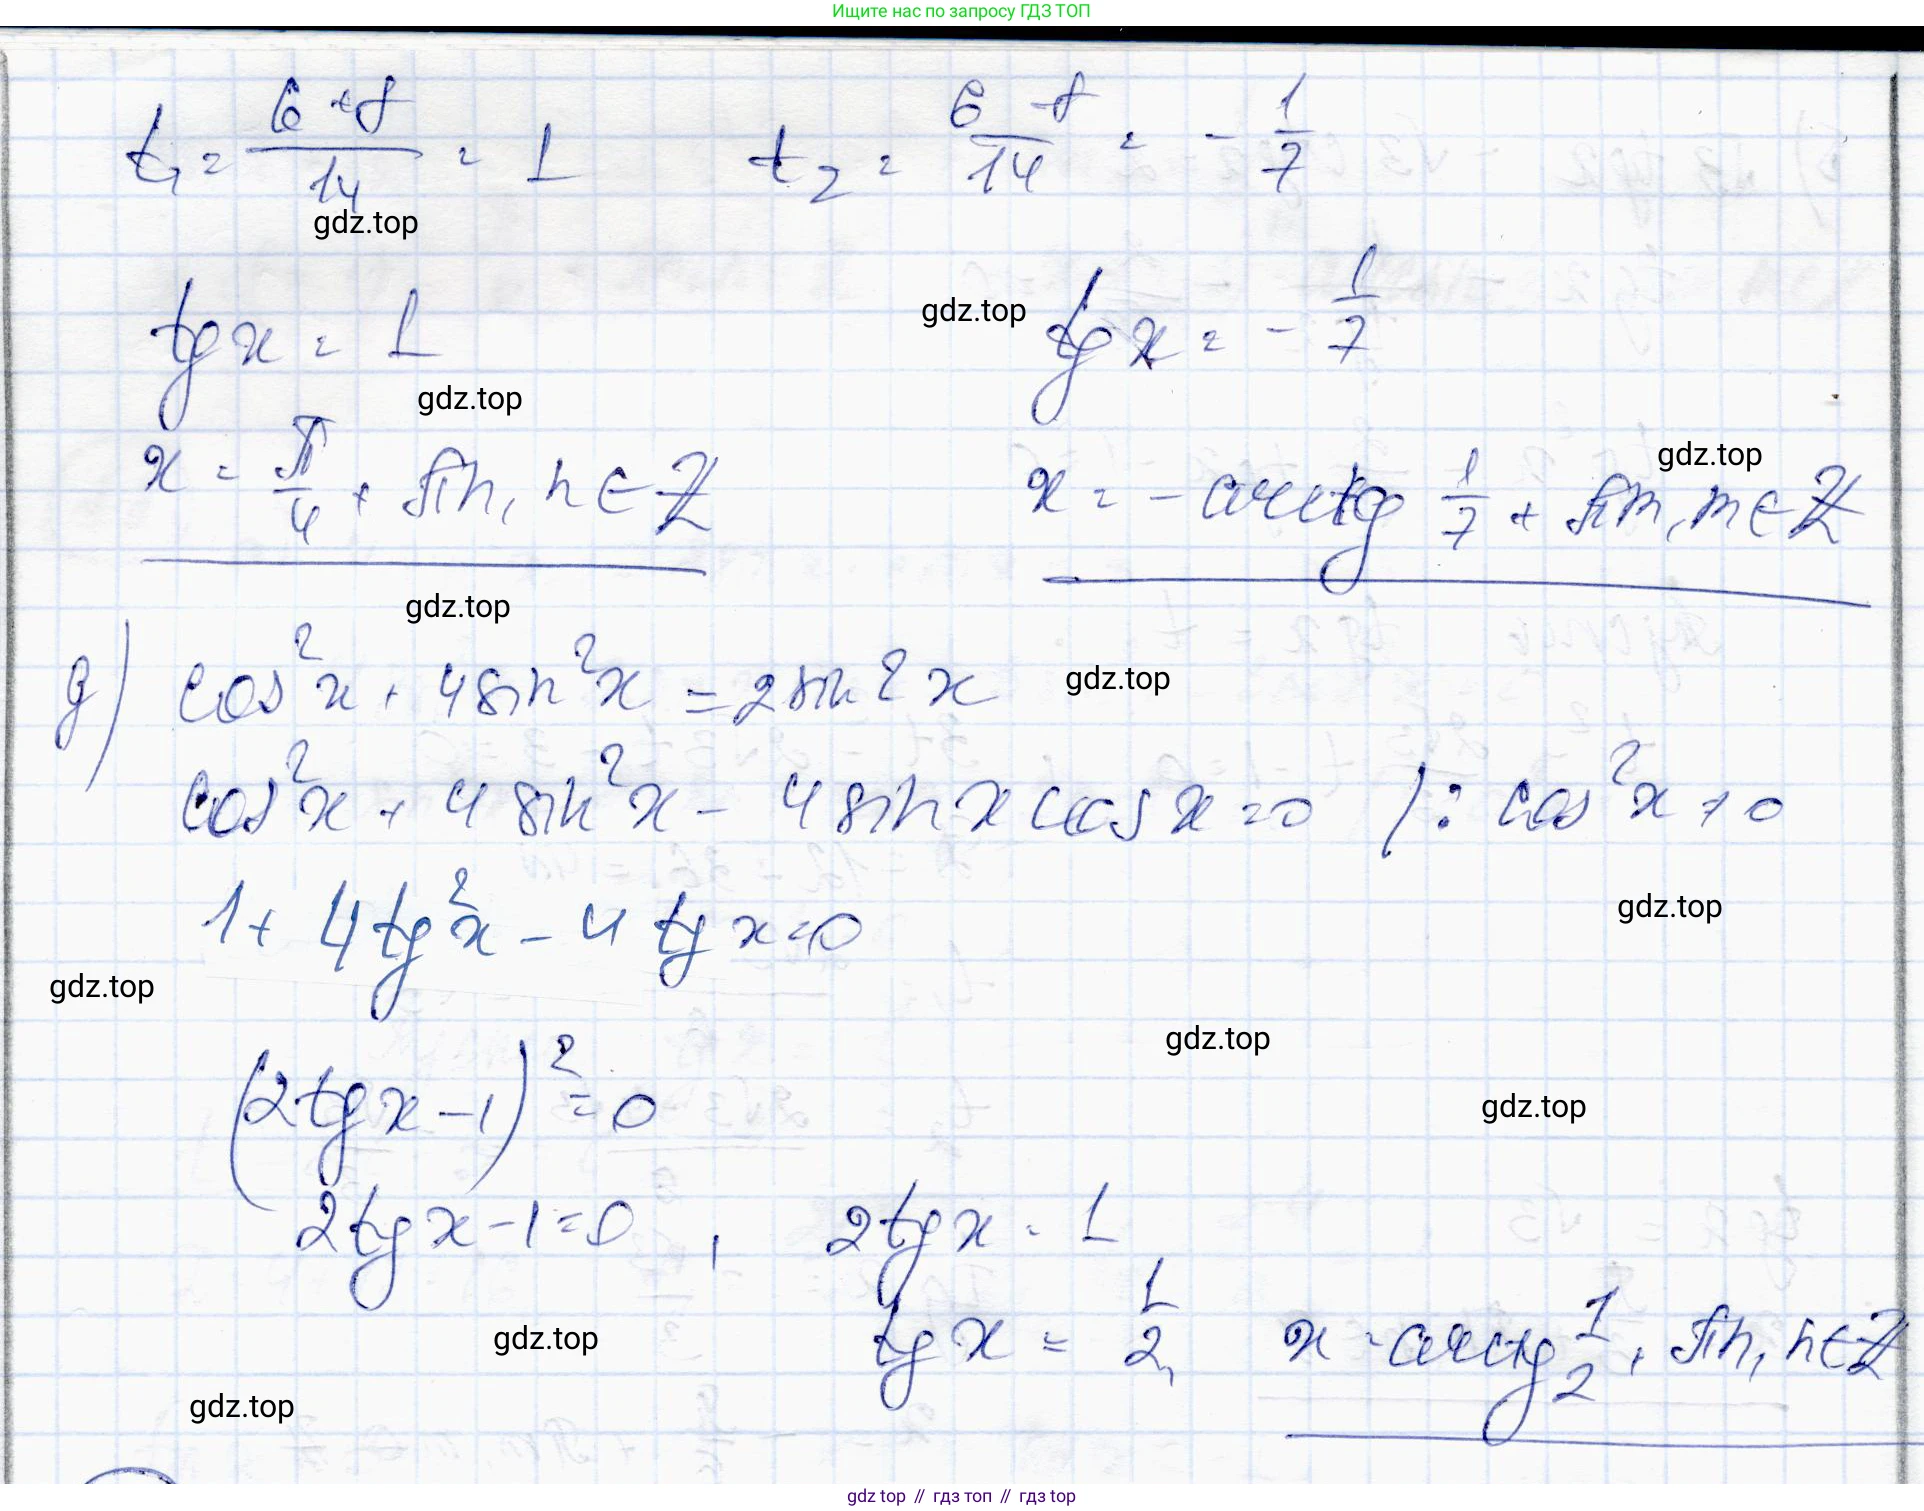 Ищите нас по запросу ГДЗ ТОП
t₁ = (6+8)/14 = 1    t₂ = (6-8)/14 = -1/7
gdz.top
tg x = 1    gdz.top    tg x = -1/7
gdz.top
x = π/4 + πn, n∈Z    x = -arctg 1/7 + πm, m∈Z    gdz.top
gdz.top
g) cos²x + 4sin²x = 2sin2x    gdz.top
cos²x + 4sin²x - 4sinxcosx=0 /: cos²x≠0
1+ 4tg²x - 4tgx=0    gdz.top
gdz.top
gdz.top
(2tgx-1)²=0    gdz.top
2tgx-1=0, 2tgx = 1
gdz.top    tgx = 1/2, x = arctg 1/2 + πn, n∈Z
gdz.top
gdz top // гдз топ // гдз top